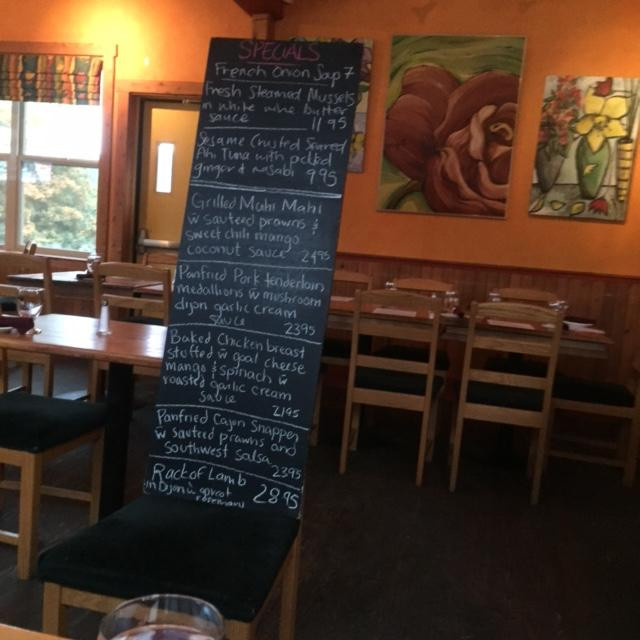 SPECIALS
French Onion Soup 7
Fresh Steamed Mussels
in white wine butter
sauce 11 95
Sesame Crusted Seared
Ahi Tuna with pickled
ginger & wasabi 9 95
Grilled Mahi Mahi
w sauteed prawns &
sweet chili mango
coconut sauce 24 95
Panfried Pork tenderloin
medallions w mushroom
dijon garlic cream
sauce 23 95
Baked Chicken breast
stuffed w goat cheese
mango & spinach w
roasted garlic cream
sauce 21 95
Panfried Cajun Snapper
w sauteed prawns and
southwest salsa
23 95
Rack of Lamb
in Dijon & apricot
rosemary 28 95